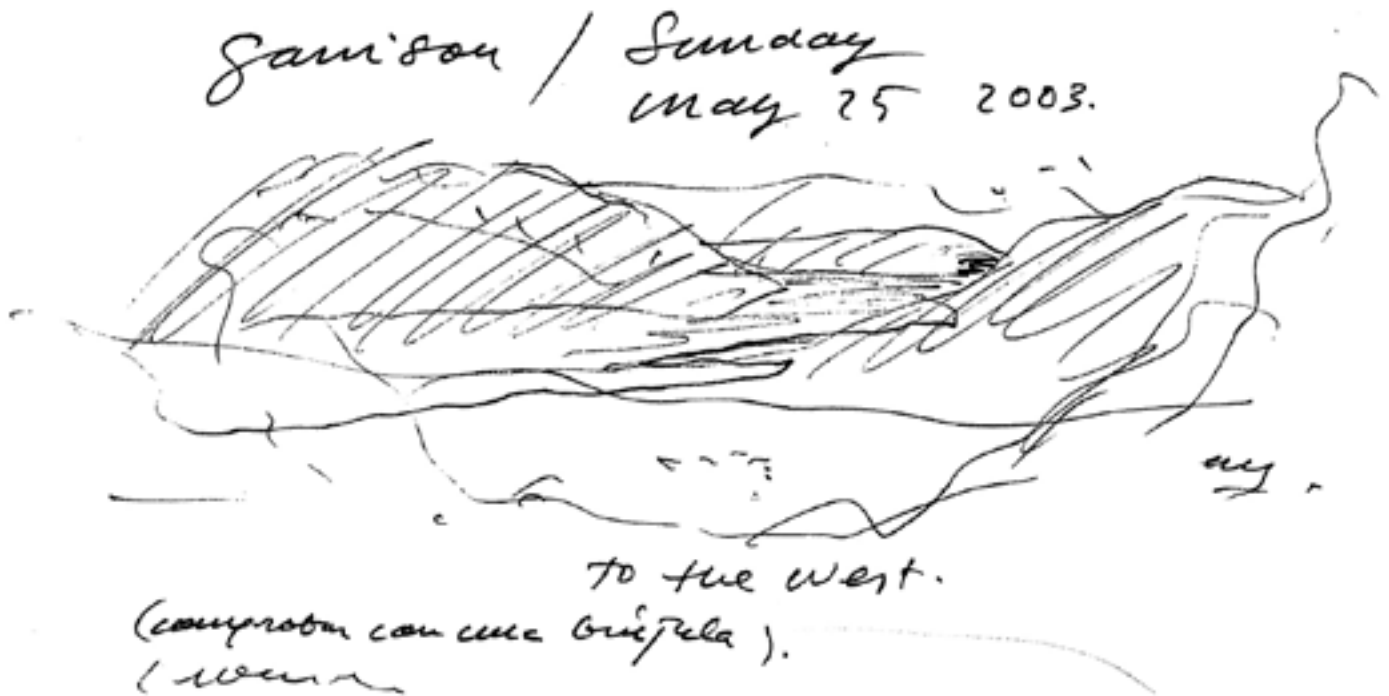 Garrison / Sunday
May 25 2003.
to the west.
(comprobar con una brújula).